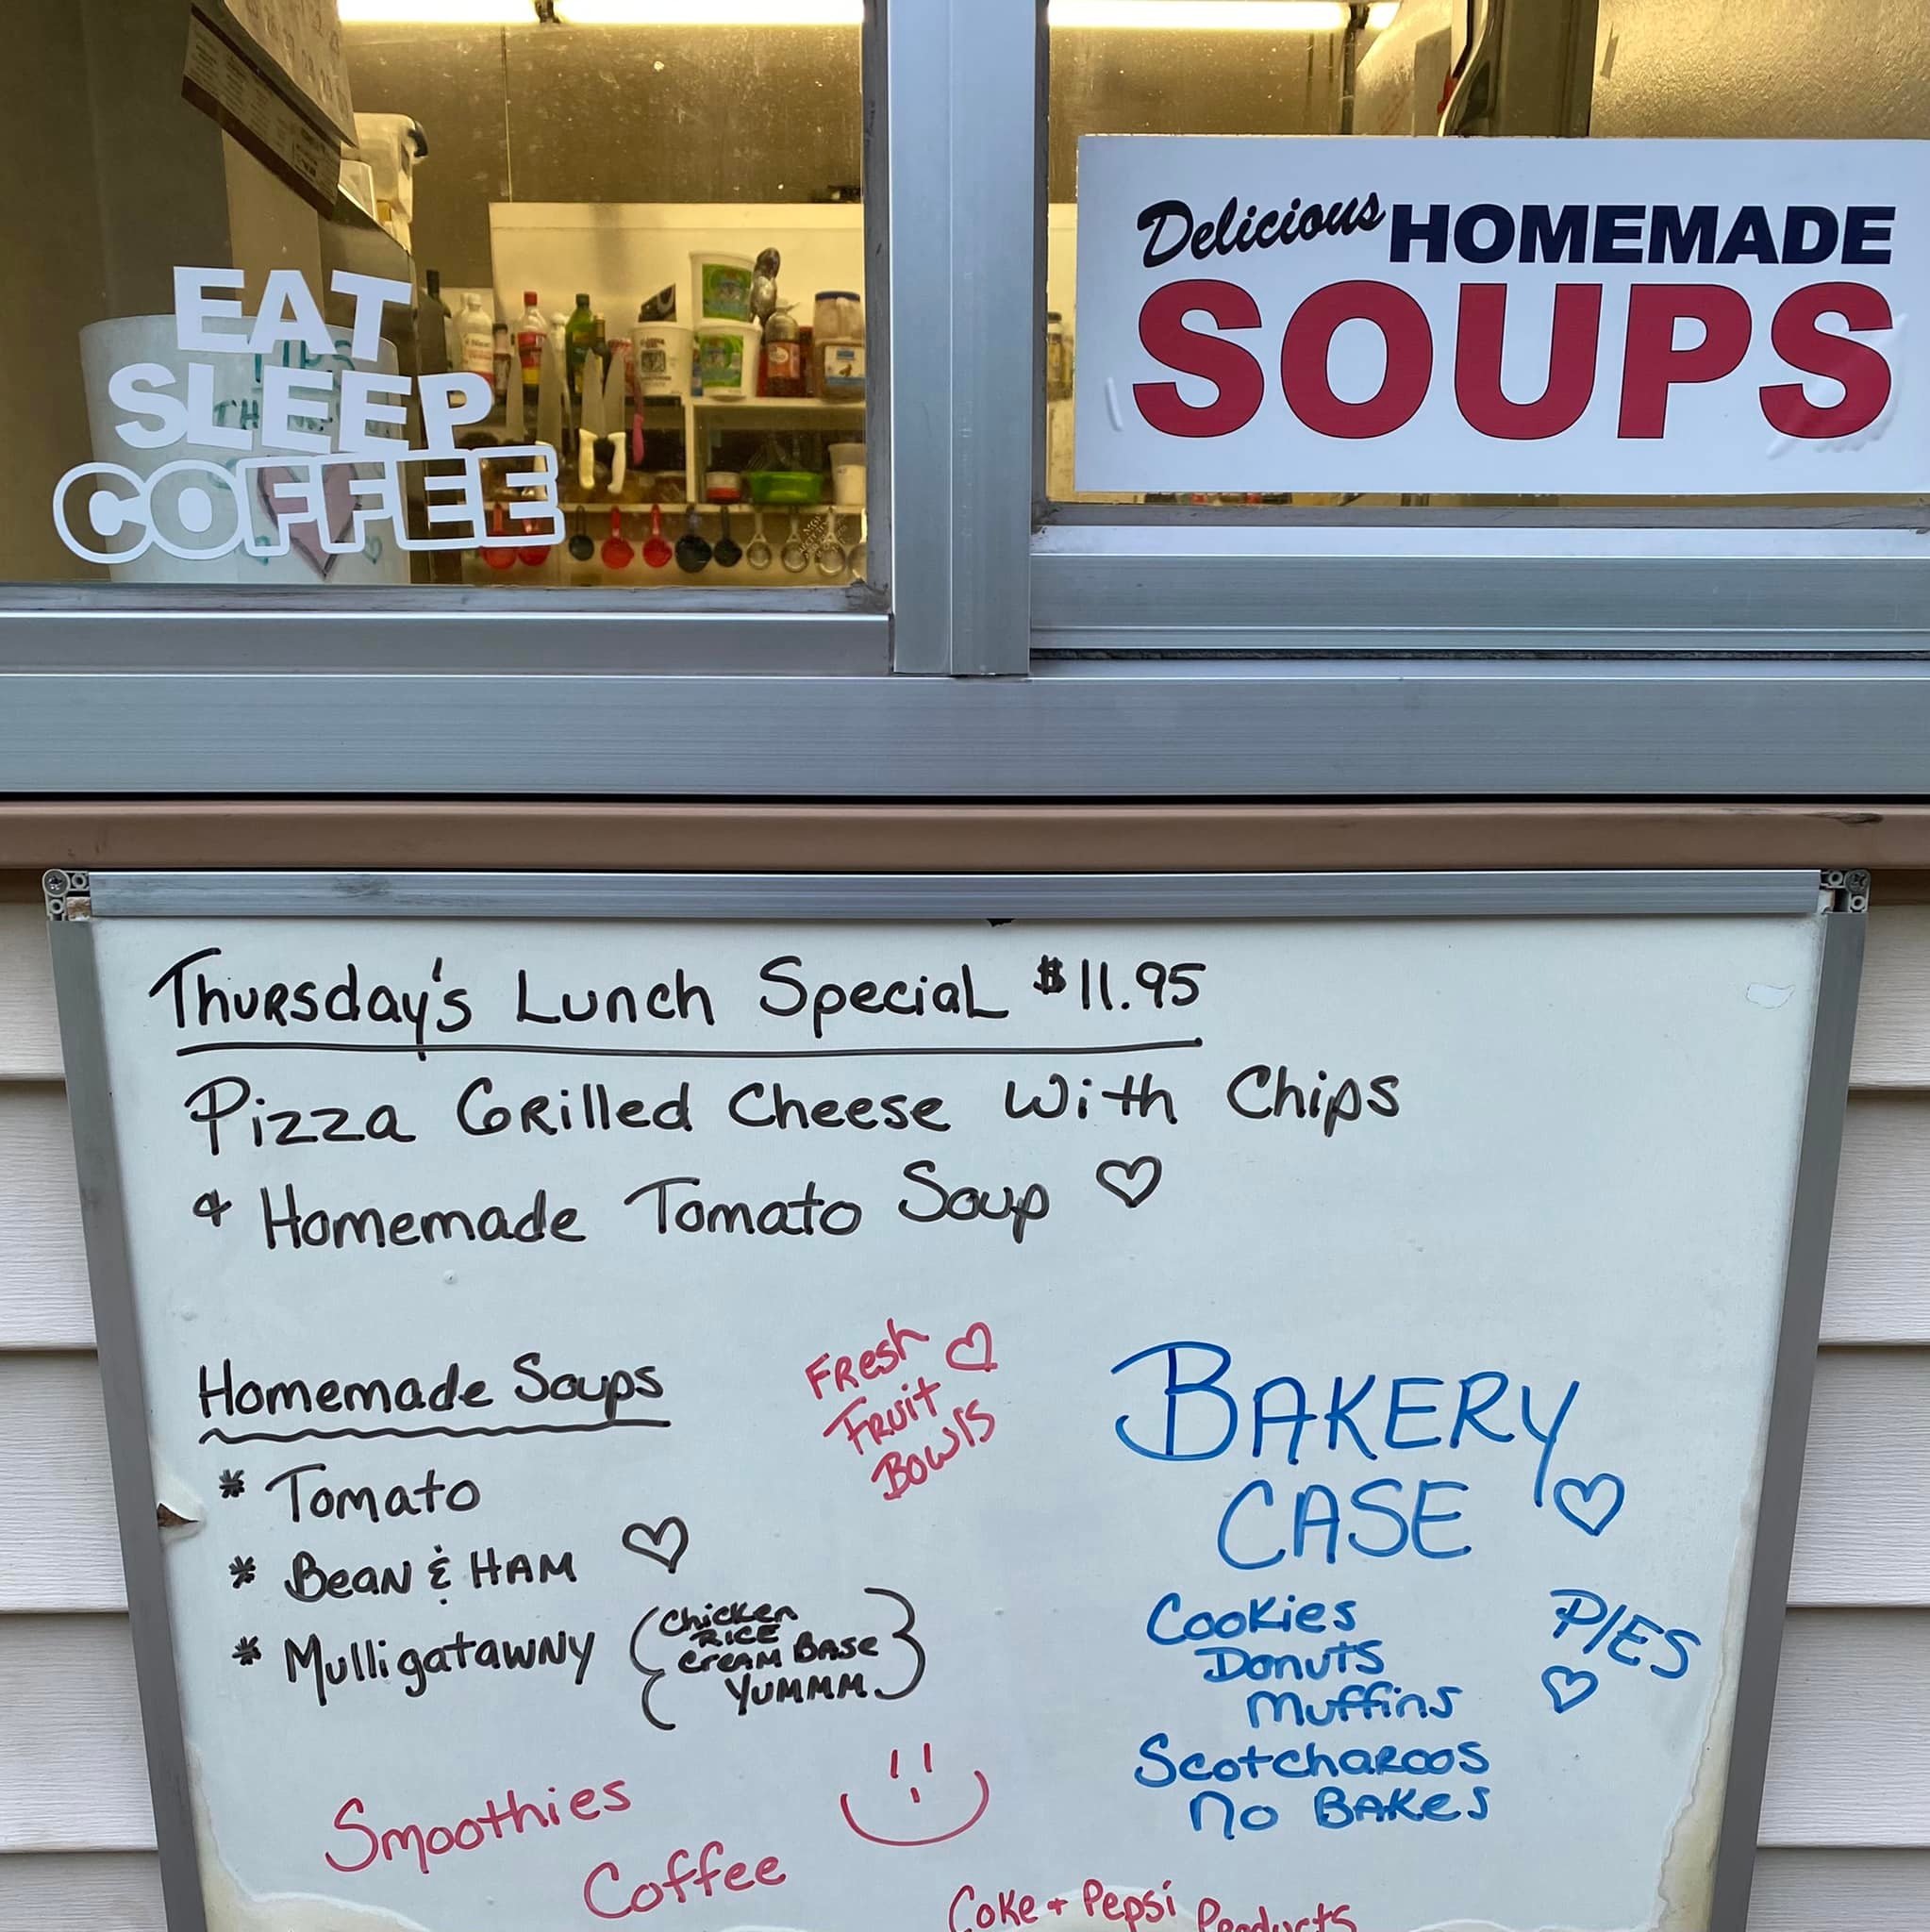 EAT
SLEEP
COFFEE
TIPS
Delicious HOMEMADE
SOUPS
Thursday's Lunch Special $11.95
Pizza Grilled Cheese With Chips
& Homemade Tomato Soup ♡
Homemade Soups
* Tomato
* Bean & HAM ♡
* Mulligatawny
Chicken
RICE
Cream Base
YUMMM
Fresh ♡
Fruit
Bowls
BAKERY
CASE ♡
Cookies
Donuts
Muffins
Scotcharoos
No Bakes
PIES
♡
Smoothies
Coffee
Coke + Pepsi Products